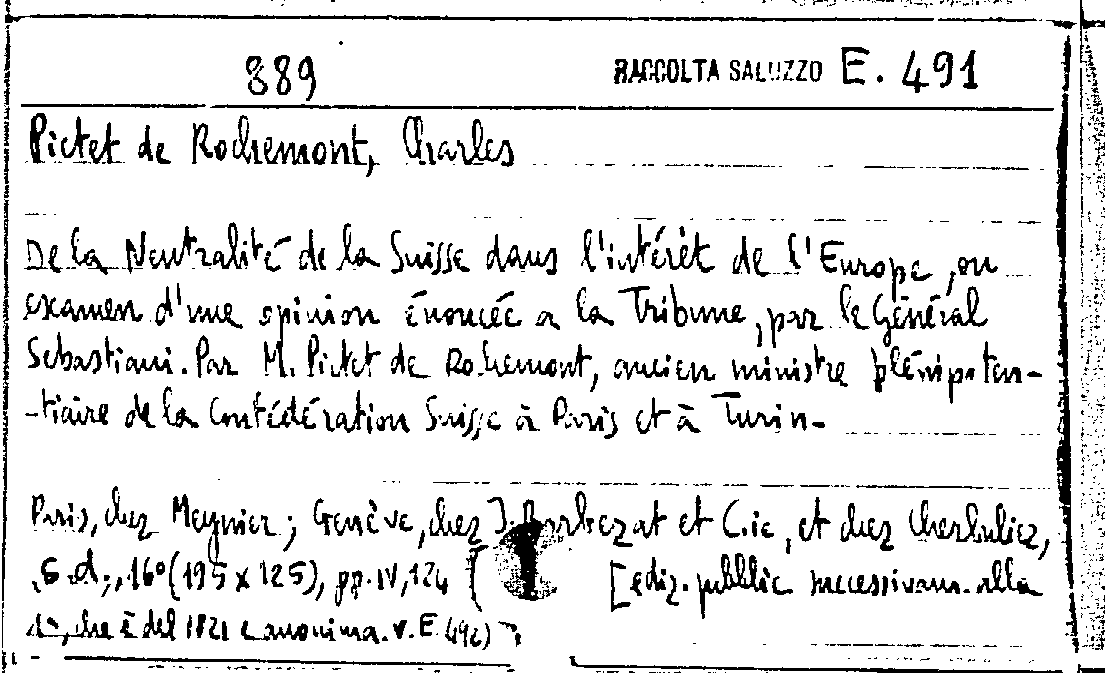 889 RACCOLTA SALUZZO E. 491
Pictet de Rochemont, Charles
De la Neutralité de la Suisse dans l'intérêt de l'Europe, ou
examen d'une opinion énoncée a la Tribune, par le Général
Sebastiani. Par M. Pictet de Rochemont, ancien ministre plénipoten-
-tiaire de la Confédération Suisse à Paris et à Turin.
Paris, chez Meynier; Genève, chez J. Barbezat et C.ie, et chez Cherbuliez,
s.d., 16° (195 x 125), pp. IV, 124 [ediz. pubblic. successivam. alla
1ª, che è del 1821 e anonima. v. E. 492)